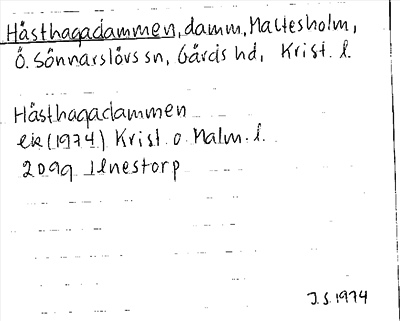 Hästhagadammen, damm, Maltesholm,
Ö. Sönnarslövs sn, Gärds hd, Krist. l.
Hästhagadammen
ek (1974) Krist. o. Malm. l.
2D9g Linnestorp
J. S. 1974